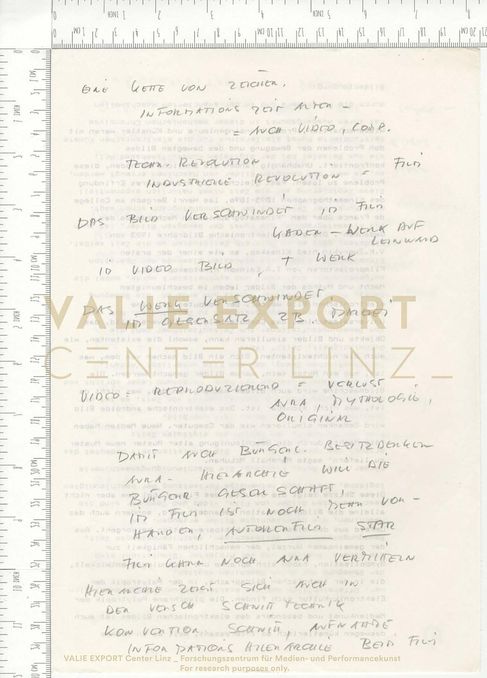 EINE KETTE VON ZEICHEN.
INFORMATIONSZEITALTER –
= AUCH VIDEO, COMP.
TECHN. REVOLUTION FILM
INDUSTRIELLE REVOLUTION =
DAS BILD VERSCHWINDET IM FILM
– WERK AUF
LEINWAND
IM VIDEO BILD + WERK
DAS WERK VERSCHWINDET
IM GEGENSATZ ZB.
VALIE EXPORT
CENTER LINZ_
VIDEO = REPRODUZIEREND = VERLUST
AURA, MYTHOLOGIE,
ORIGINAL
DAMIT AUCH BÜRGERL. BESITZDENKEN
AURA - HIERARCHIE WILL DIE
BÜRGERL GESELLSCHAFT,
IM FILM IST NOCH VOR-
HANDEN, AUTORENFILM STAR
FILM KANN NOCH AURA VERMITTELN
HIERARCHIE ZEIGT SICH AUCH IN
DER VERSCH SCHNITTTECHNIK
KONVENTION SCHNITT, AUFNAHME
INFORMATIONS HIERARCHIE BEIM FILM
VALIE EXPORT Center Linz _ Forschungszentrum für Medien- und Performancekunst
For research purposes only.